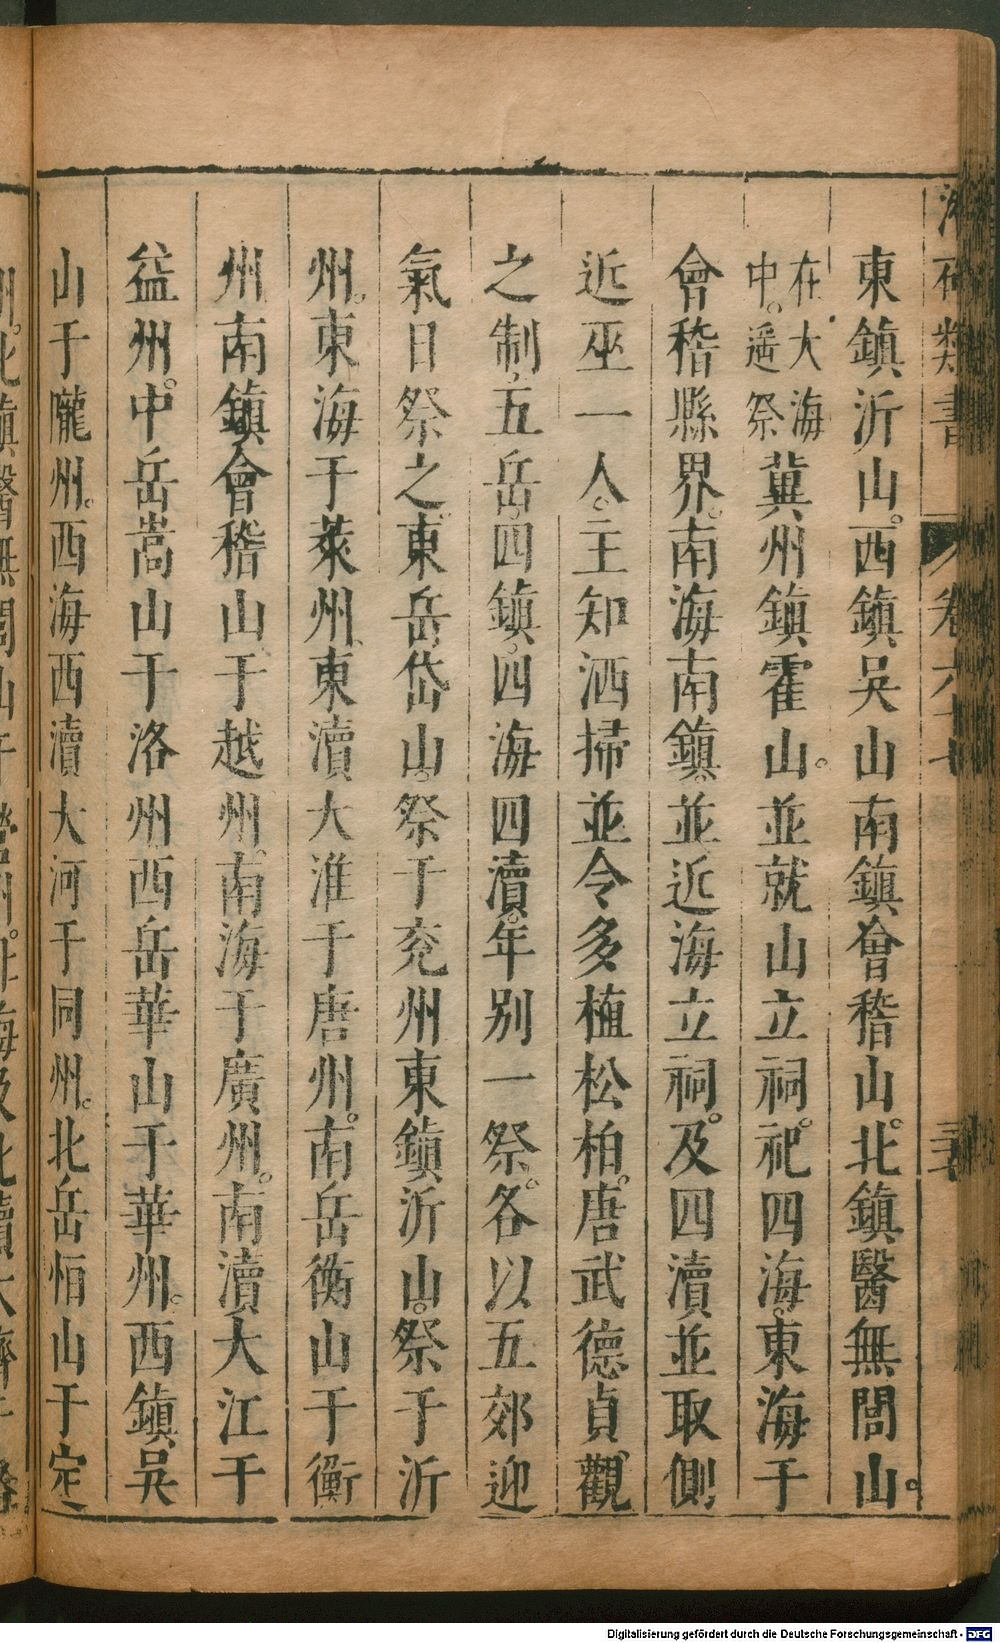 東鎮沂山。西鎮吳山南鎮會稽山。北鎮醫無閭山。
在大海中。遥祭冀州鎮霍山。並就山立祠。祀四海。東海于
會稽縣界。南海南鎮並近海立祠。及四瀆並取側
近巫一人。主知洒掃並令多植松柏。唐武德貞觀
之制五岳。四鎮。四海四瀆。年别一祭。各以五郊迎
氣日祭之。東岳岱山。祭于兖州東鎮沂山。祭于沂
州。東海于萊州、東瀆大淮于唐州。南岳衡山于衡
州南鎮會稽山于越州。南海于廣州。南瀆大江于
益州。中岳嵩山于洛州西岳華山于華州。西鎮吳
山于隴州。西海西瀆大河于同州。北岳恒山于定
類書 卷六十七